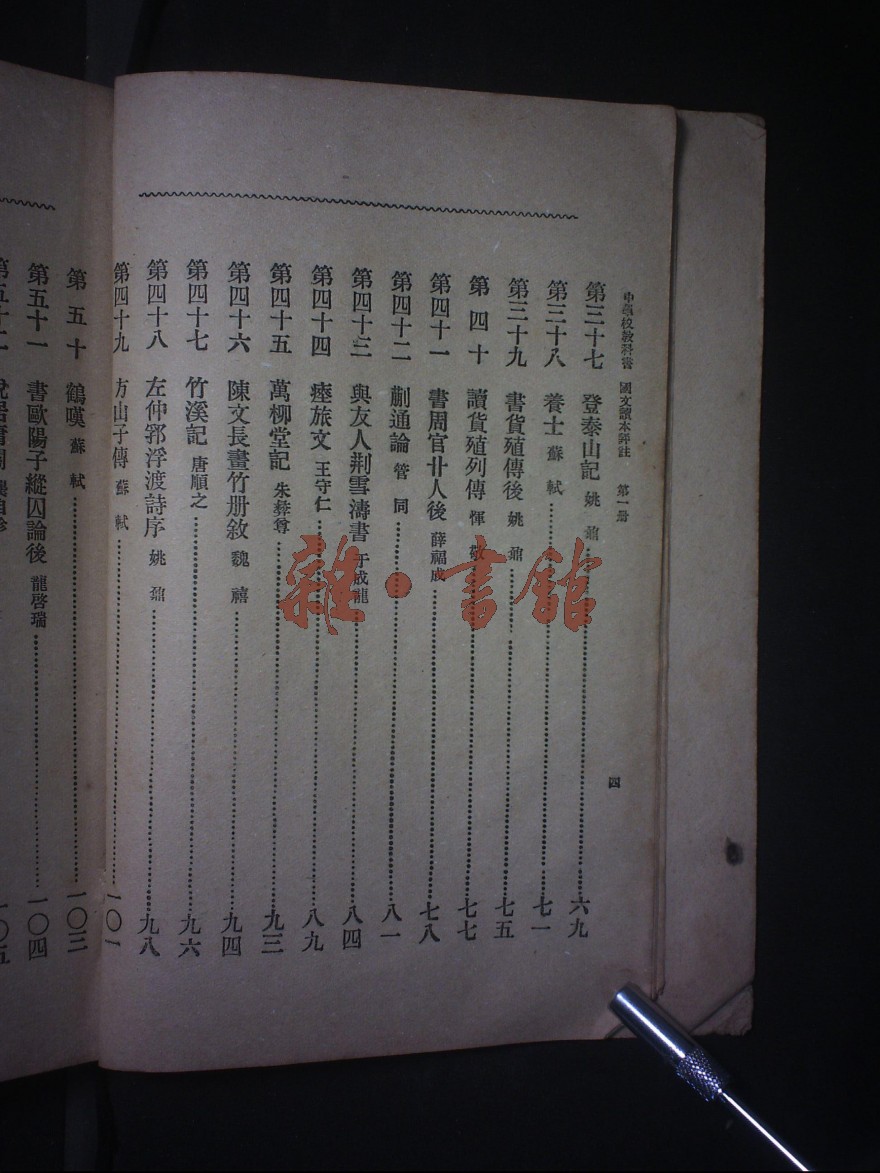 中學校教科書 國文讀本評註 第一册 四
第三十七 登泰山記 姚鼐 六九
第三十八 養士 蘇軾 七一
第三十九 書貨殖傳後 姚鼐 七五
第四十 讀貨殖列傳 惲敬 七七
第四十一 書周官廿人後 薛福成 七八
第四十二 蒯通論 管同 八一
第四十三 與友人荆雪濤書 于成龍 八四
第四十四 瘞旅文 王守仁 八九
第四十五 萬柳堂記 朱彝尊 九三
第四十六 陳文長畫竹册敘 魏禧 九四
第四十七 竹溪記 唐順之 九六
第四十八 左仲郛浮渡詩序 姚鼐 九八
第四十九 方山子傳 蘇軾 一〇一
第五十 鶴嘆 蘇軾 一〇三
第五十一 書歐陽子縱囚論後 龍啓瑞 一〇四
雜·書館